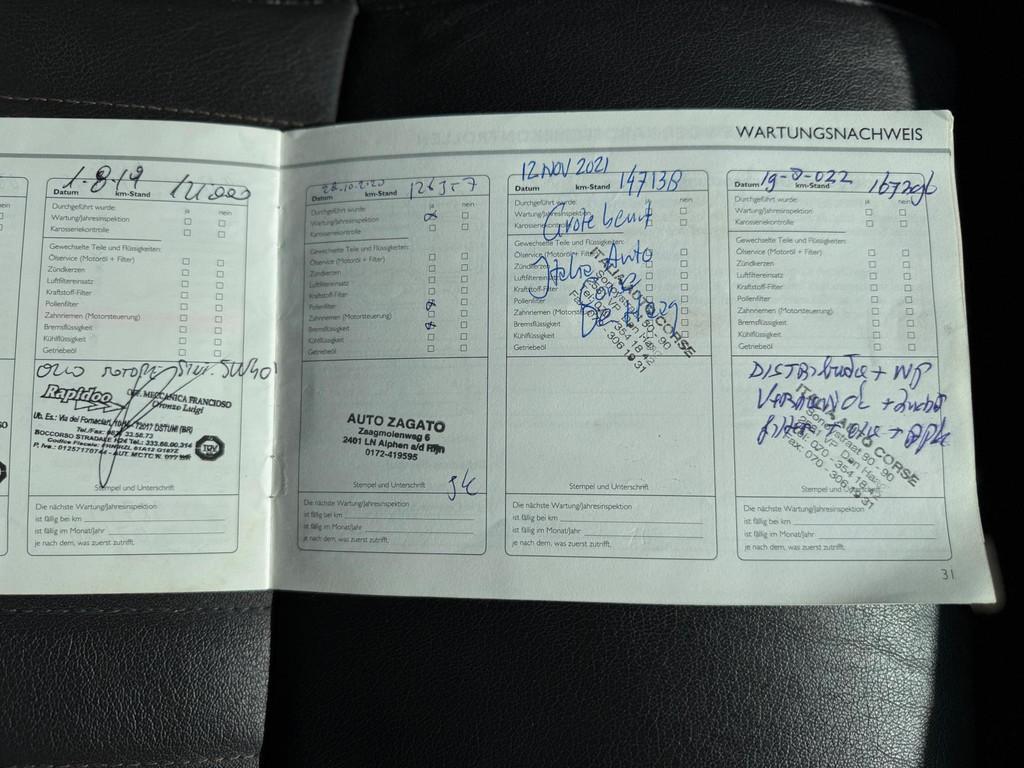 WARTUNGSNACHWEIS
1-8-19
Datum km-Stand
Durchgeführt wurde: ja nein
Wartung/Jahresinspektion
Karosseriekontrolle
Gewechselte Teile und Flüssigkeiten:
Ölservice (Motoröl + Filter)
Zündkerzen
Luftfiltereinsatz
Kraftstoff-Filter
Pollenfilter
Zahnriemen (Motorsteuerung)
Bremsflüssigkeit
Kühlflüssigkeit
Getriebeöl
OLIO MOTORE
Rapidoo OFF. MECCANICA FRANCIOSO
Oronzo Luigi
Ub. Es.: Via dei Fornaciari, 72017 OSTUNI (BR)
BOCCORSO STRADALE H24 Tel.: 333.66.00.314
P. Iva.: 01257170744 - AUT. MCTC
TÜV
Stempel und Unterschrift
Die nächste Wartung/Jahresinspektion
ist fällig bei km
ist fällig im Monat/Jahr
je nach dem, was zuerst zutrifft.
28.10.2020 126357
Datum km-Stand
Durchgeführt wurde: ja nein
Wartung/Jahresinspektion
Karosseriekontrolle
Gewechselte Teile und Flüssigkeiten:
Ölservice (Motoröl + Filter)
Zündkerzen
Luftfiltereinsatz
Kraftstoff-Filter
Pollenfilter
Zahnriemen (Motorsteuerung)
Bremsflüssigkeit
Kühlflüssigkeit
Getriebeöl
AUTO ZAGATO
Zaagmolenweg 6
2401 LN Alphen a/d Rijn
0172-419595
Stempel und Unterschrift
Die nächste Wartung/Jahresinspektion
ist fällig bei km
ist fällig im Monat/Jahr
je nach dem, was zuerst zutrifft.
12 NOV 2021 147138
Datum km-Stand
Durchgeführt wurde: ja nein
Wartung/Jahresinspektion
Karosseriekontrolle
Grote beurt
Gewechselte Teile und Flüssigkeiten:
Ölservice (Motoröl + Filter)
Italia Auto
Zündkerzen
Luftfiltereinsatz
Kraftstoff-Filter
Pollenfilter
Zahnriemen (Motorsteuerung)
Den Haag
Bremsflüssigkeit
Kühlflüssigkeit
Getriebeöl
ITALIA AUTO CORSE
80 - 90
Den Haag
354 18 42
306 19 31
Stempel und Unterschrift
Die nächste Wartung/Jahresinspektion
ist fällig bei km
ist fällig im Monat/Jahr
je nach dem, was zuerst zutrifft.
Datum km-Stand
Durchgeführt wurde: ja nein
Wartung/Jahresinspektion
Karosseriekontrolle
Gewechselte Teile und Flüssigkeiten:
Ölservice (Motoröl + Filter)
Zündkerzen
Luftfiltereinsatz
Kraftstoff-Filter
Pollenfilter
Zahnriemen (Motorsteuerung)
Bremsflüssigkeit
Kühlflüssigkeit
Getriebeöl
DISTRIbutie + WP
AUTO CORSE
80 - 90
Tel: 070 - 354 18 42
Fax: 070 - 306 19 31
Stempel und
Die nächste Wartung/Jahresinspektion
ist fällig bei km
ist fällig im Monat/Jahr
je nach dem, was zuerst zutrifft.
31